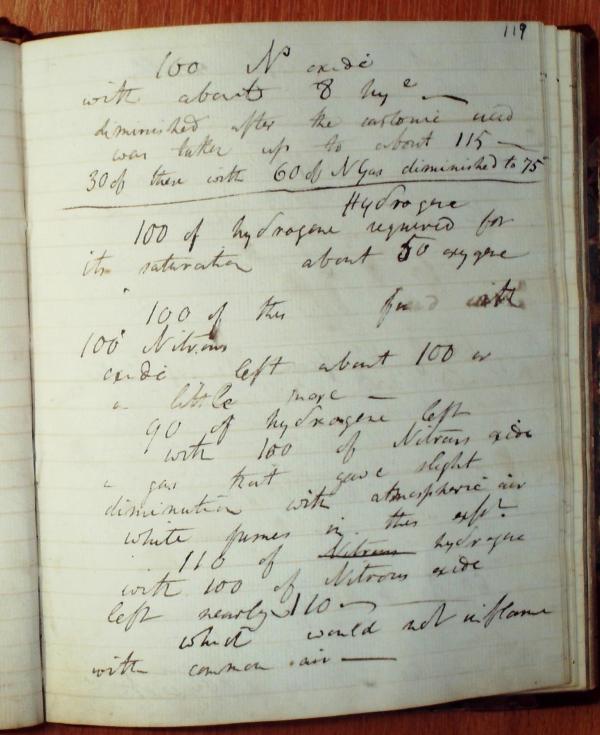 119
100 Ns oxide
with about 8 hye —
diminished after the caustic
was taken up to about 115 —
30 of these with 60 of N Gas diminished to 75
Hydrogene
100 of hydrogene required for
its saturation about 50 oxygene
100 of this with
100 Nitrous
oxide left about 100 or
a little more —
90 of hydrogene left
with 100 of Nitrous oxide
a gas that gave slight
diminution with atmospheric air
white fumes in this expt
110 of Nitrous hydrogene
with 100 of Nitrous oxide
left nearly 110 —
which would not inflame
with common air —